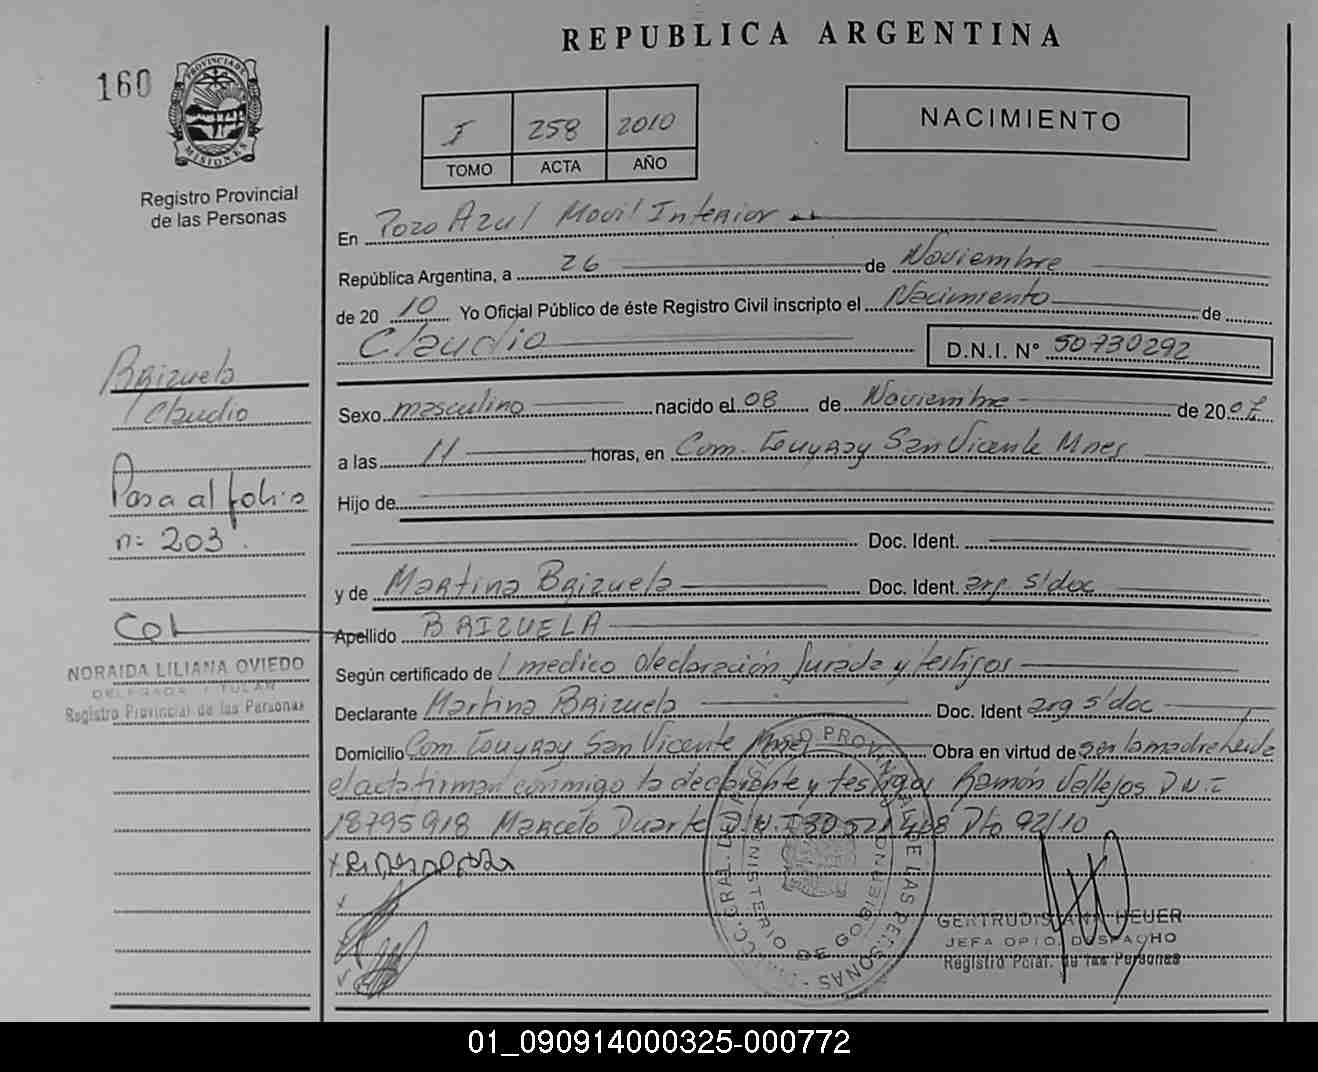 REPUBLICA ARGENTINA
160
PROVINCIA DE
MISIONES
Registro Provincial
de las Personas
I 258 2010
TOMO ACTA AÑO
NACIMIENTO
En Pozo Azul Movil Interior
República Argentina, a 26 de Noviembre
de 20 10 Yo Oficial Público de éste Registro Civil inscripto el Nacimiento de
Claudio D.N.I. N° 50730292
Sexo masculino nacido el 08 de Noviembre de 2007
a las 11 horas, en Com. San Vicente Mnes
Hijo de
Doc. Ident.
y de Martina Brizuela Doc. Ident. arg s/doc
Apellido BRIZUELA
Según certificado de medico declaración Jurada y testigos
Declarante Martina Brizuela Doc. Ident arg s/doc
Domicilio Com. San Vicente Mnes Obra en virtud de ser la madre Leida
el acta firman conmigo la declarante y testigos Ramón Vallejos D.N.I
18795918 Marcelo Duarte D.N.I 30 521 Dto 92/10
Brizuela
Claudio
Pasa al folio
n: 203.
NORAIDA LILIANA OVIEDO
DELEGADA TITULAR
Registro Provincial de las Personas
DIRECC. GRAL. DEL REGISTRO PROVINCIAL DE LAS PERSONAS
MINISTERIO DE GOBIERNO
GERTRUDIS ANA HEUER
JEFA DPTO. DESPACHO
Registro Pcial. de las Personas
01_090914000325-000772